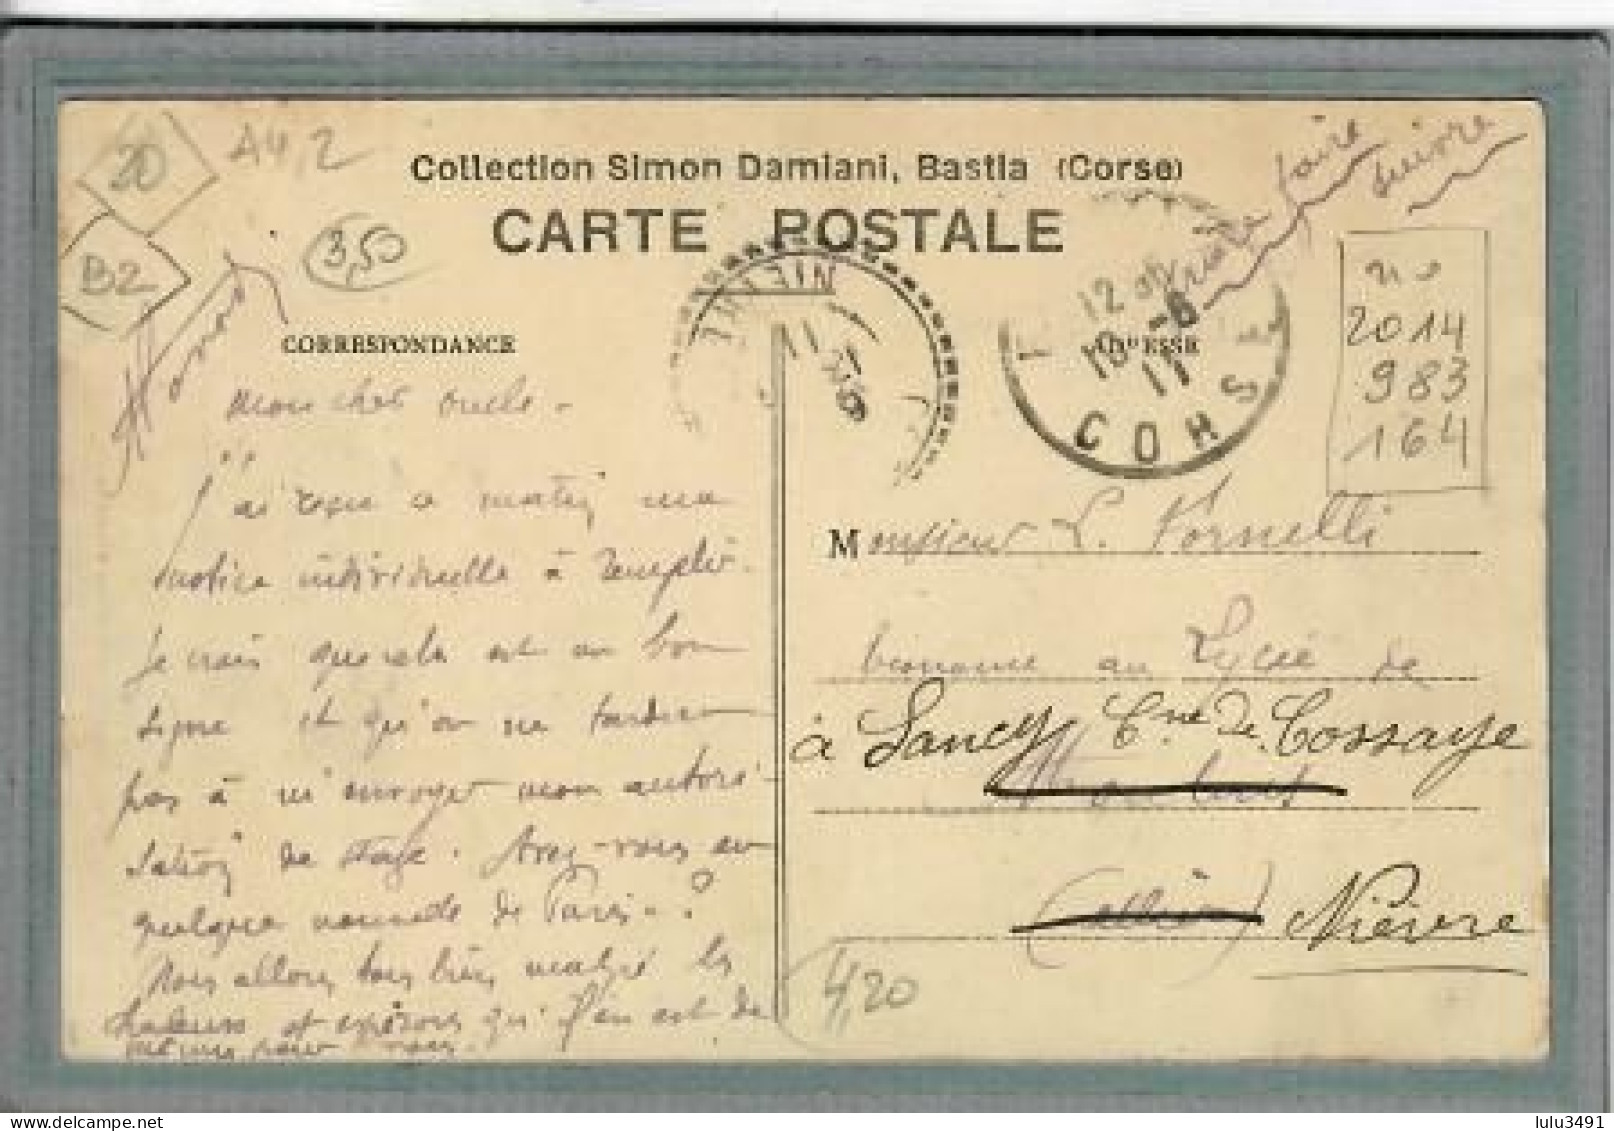 20
A4,2
Collection Simon Damiani, Bastia (Corse)
CARTE POSTALE
Prière faire
suivre
B2
3,50
CORRESPONDANCE
ADRESSE
NIEVRE
12
10 -6
11
CORSE
no
2014
983
164
Mon cher oncle -
J'ai reçu ce matin ma
notice individuelle à remplir.
Je crois que cela est un bon
signe et qu'on ne tardera
pas à m'envoyer mon autori-
sation de stage. Avez-vous eu
quelque nouvelle de Paris - ?
Nous allons tous bien malgré les
chaleurs et espérons qu'il en est de
même pour vous.
Monsieur L. Fornelli
économe au Lycée de
à Lancy Cne de Cossaye
Montluçon
(Allier) Nièvre
4,20
lulu3491